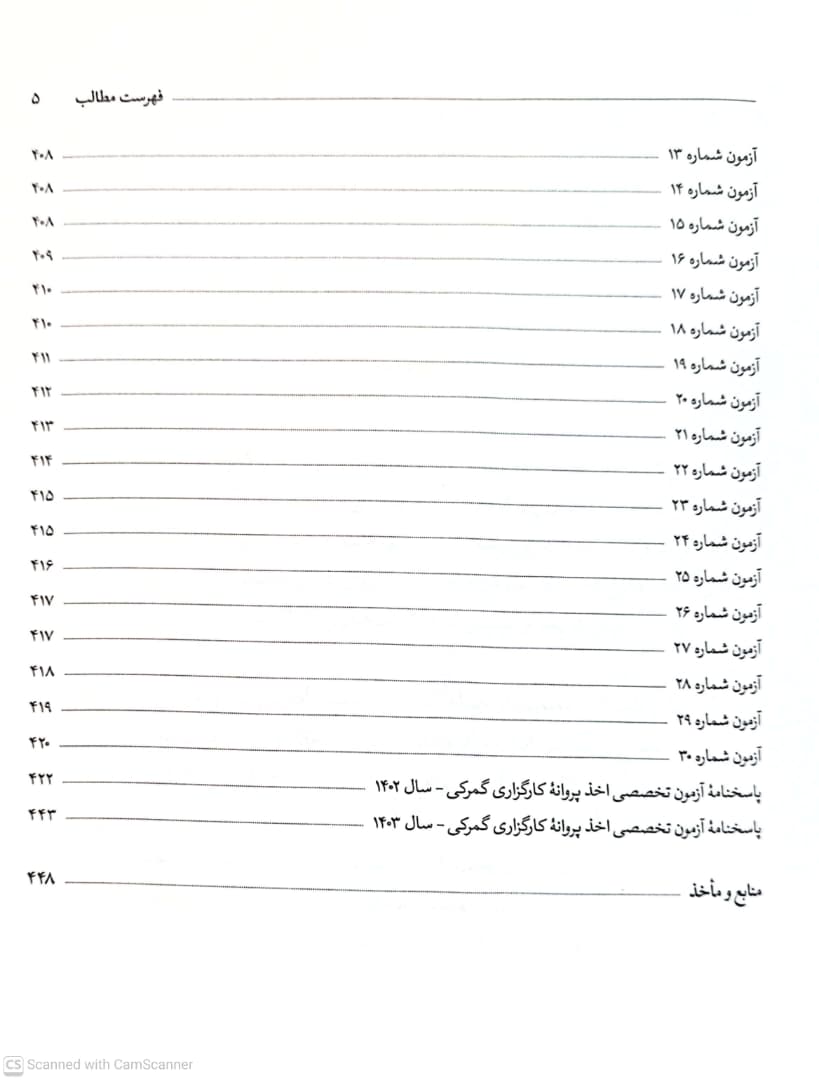 فهرست مطالب ۵
آزمون شماره ۱۳ ۴۰۸
آزمون شماره ۱۴ ۴۰۸
آزمون شماره ۱۵ ۴۰۸
آزمون شماره ۱۶ ۴۰۹
آزمون شماره ۱۷ ۴۱۰
آزمون شماره ۱۸ ۴۱۰
آزمون شماره ۱۹ ۴۱۱
آزمون شماره ۲۰ ۴۱۲
آزمون شماره ۲۱ ۴۱۳
آزمون شماره ۲۲ ۴۱۴
آزمون شماره ۲۳ ۴۱۵
آزمون شماره ۲۴ ۴۱۵
آزمون شماره ۲۵ ۴۱۶
آزمون شماره ۲۶ ۴۱۷
آزمون شماره ۲۷ ۴۱۷
آزمون شماره ۲۸ ۴۱۸
آزمون شماره ۲۹ ۴۱۹
آزمون شماره ۳۰ ۴۲۰
پاسخنامهٔ آزمون تخصصی اخذ پروانهٔ کارگزاری گمرکی – سال ۱۴۰۲ ۴۲۲
پاسخنامهٔ آزمون تخصصی اخذ پروانهٔ کارگزاری گمرکی – سال ۱۴۰۳ ۴۴۳
منابع و مأخذ ۴۴۸
CS Scanned with CamScanner